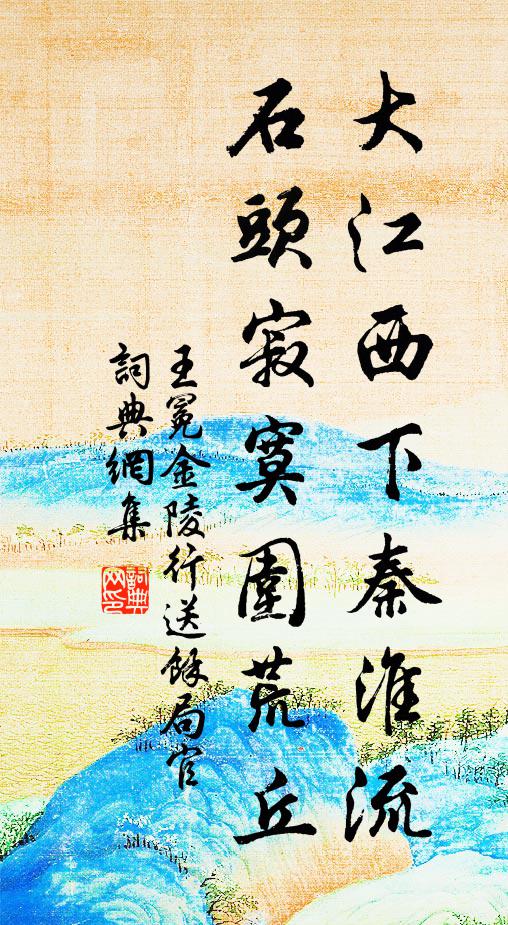 大江西下秦淮流
石頭寂寞圍荒丘
王冕金陵行送餘局官
詞典網集
詞典網印